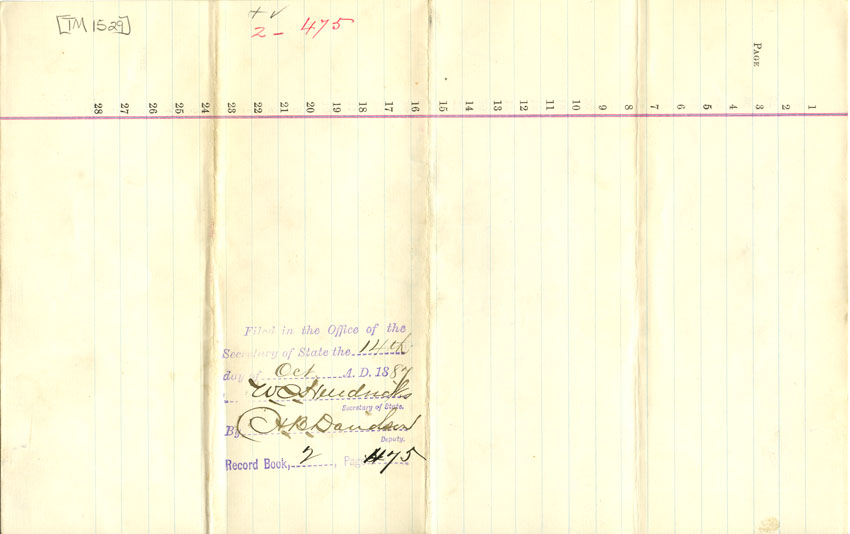 [TM 1529]
+ ✓
2 - 475
PAGE
1 2 3 4 5 6 7 8 9 10 11 12 13 14 15 16 17 18 19 20 21 22 23 24 25 26 27 28
Filed in the Office of the
Secretary of State the 14th
day of Oct. A. D. 1887
W C Hendricks
Secretary of State.
By A.B. Davidson
Deputy.
Record Book, 2, Page 475